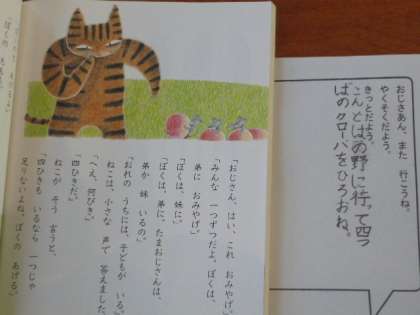 おじさあん、また 行こうね。
やくそくだよう。
きっとだよう。
こんどはの野に行って四つ
ばのクローバをひろおね。
「おじさん、はい、これ おみやげ。」
「みんな 一つずつだよ。ぼくは、
弟に おみやげ。」
「ぼくは、妹に。」
「ぼくは、弟に。たまおじさんは、
弟か 妹 いるの。」
「おれの うちには、子どもが いる。」
ねこは、小さな 声で 答えました。
「へえ、何びき。」
「四ひきだ。」
ねこが そう 言うと、
「四ひきも いるなら 一つじゃ
足りないよね。ぼくの あげる。」